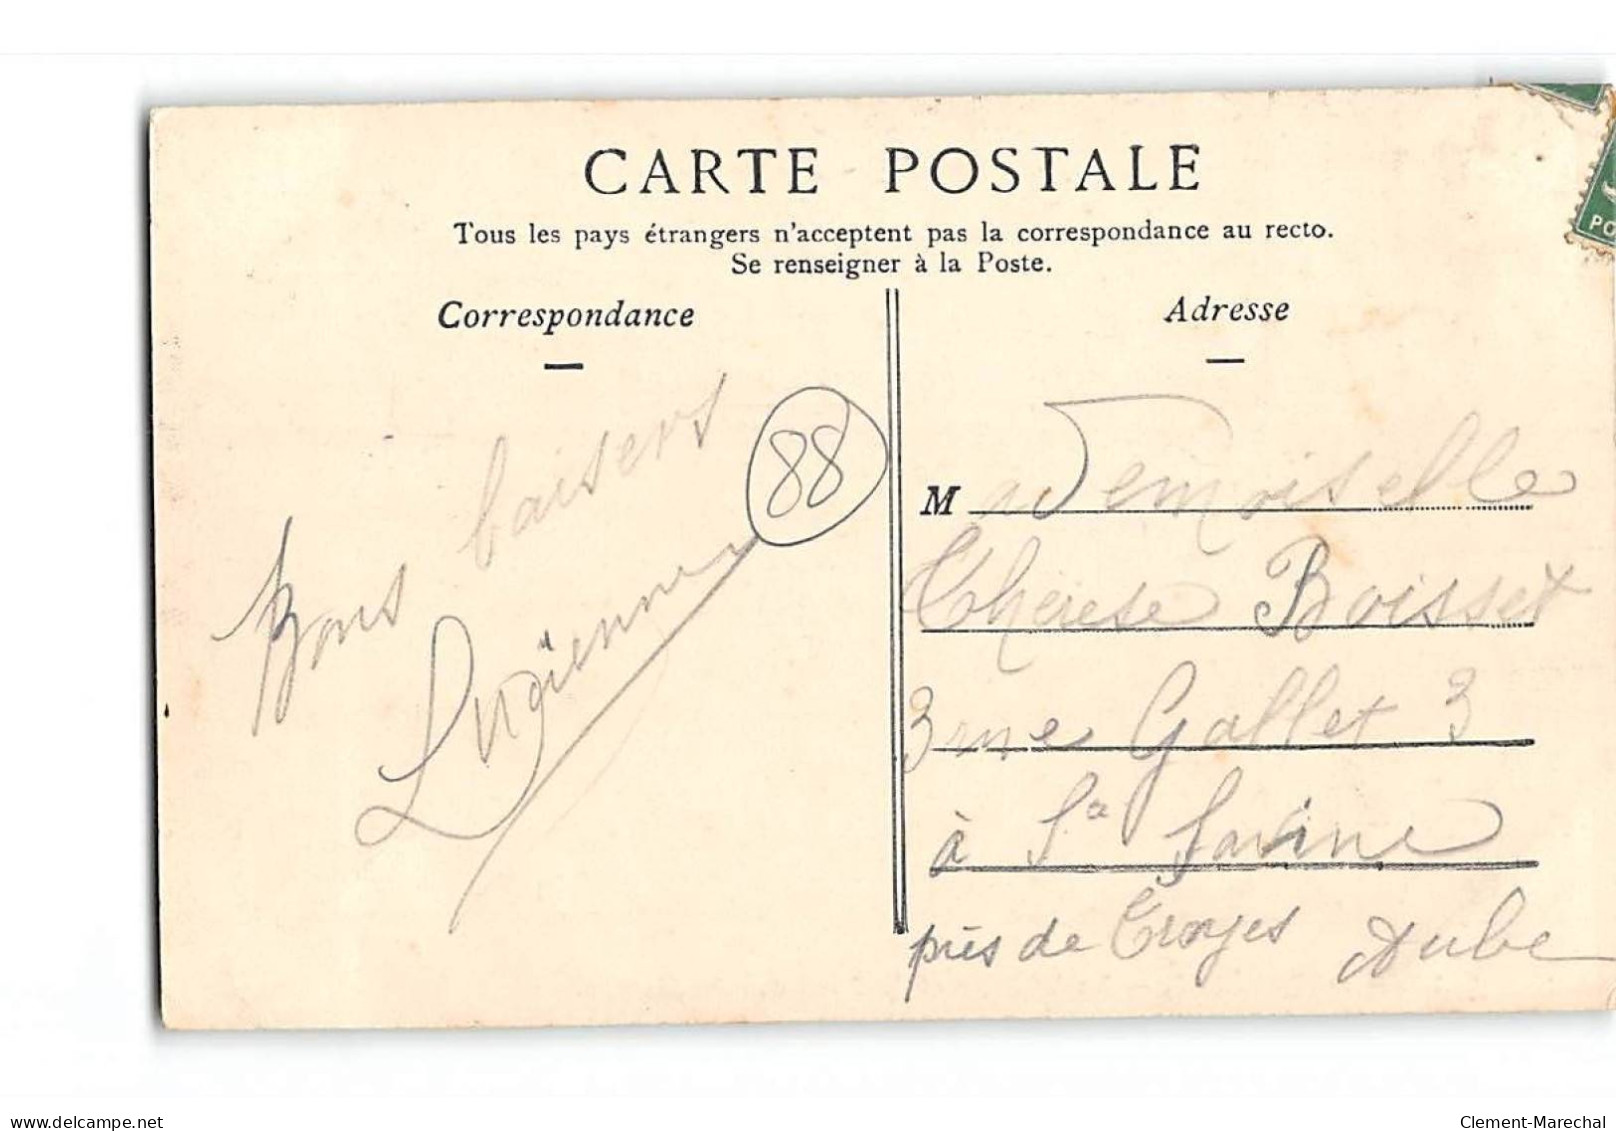 CARTE POSTALE
Tous les pays étrangers n'acceptent pas la correspondance au recto.
Se renseigner à la Poste.
Correspondance
Adresse
Bons baisers
88
Mademoiselle
Thérèse Boisset
3 rue Gallet 3
à Ste Savine
près de Troyes Aube
PO
delcampe.net
Clement-Marechal